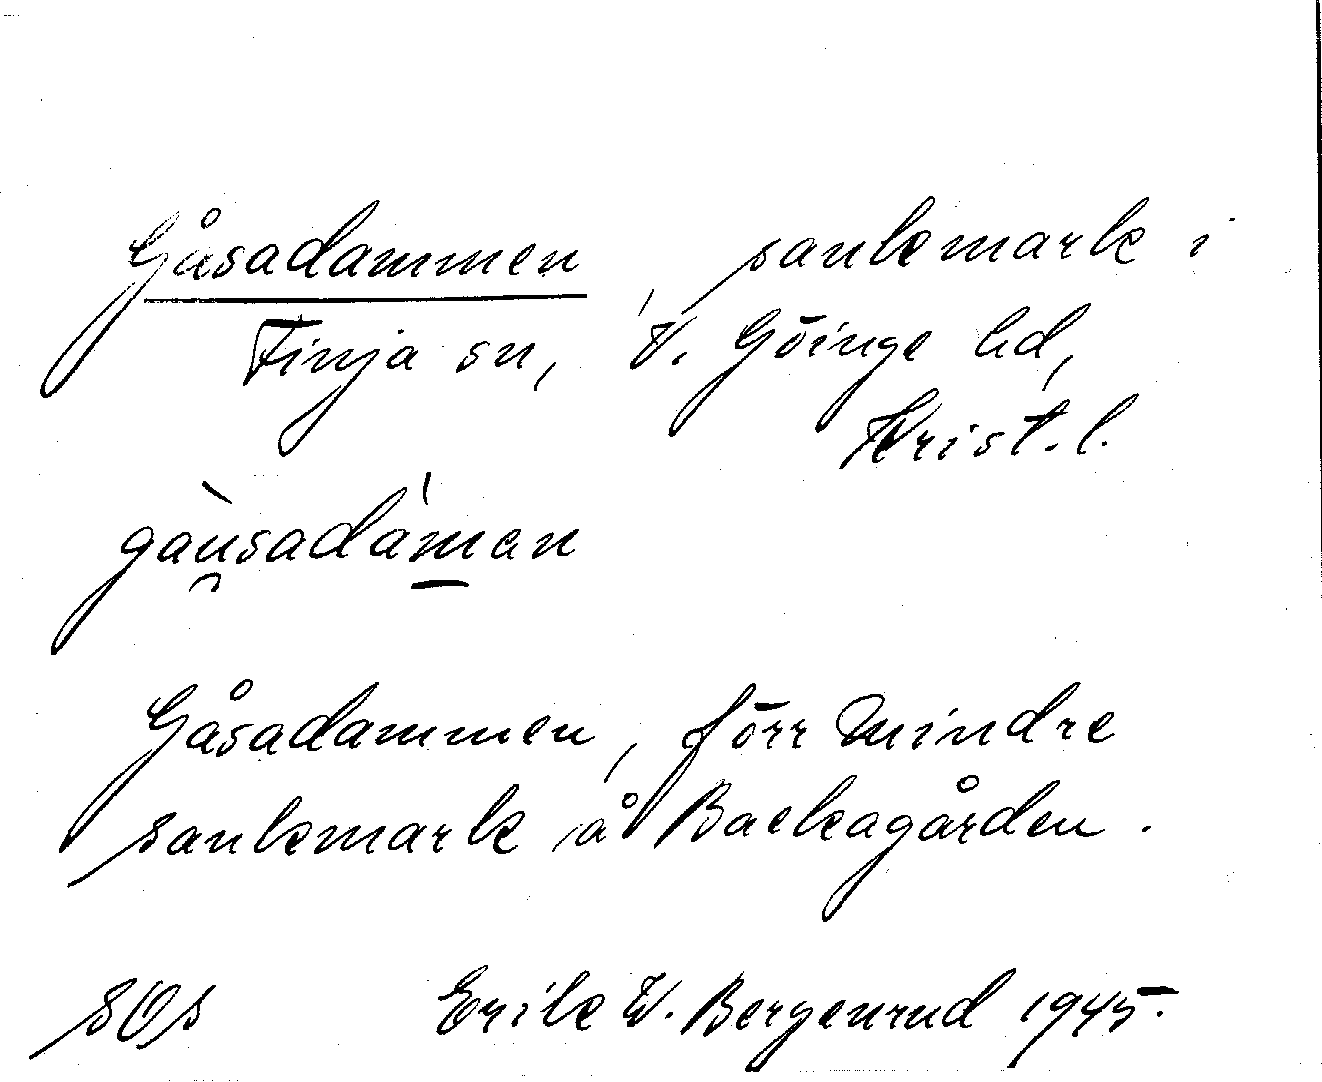 Gåsadammen, sankmark i
Finja sn, V. Göinge hd,
Krist. l.
gàu̯sadám̲an
Gåsadammen, förr mindre
sankmark å Backagården.
SOS Erik W. Bergenrud 1945.